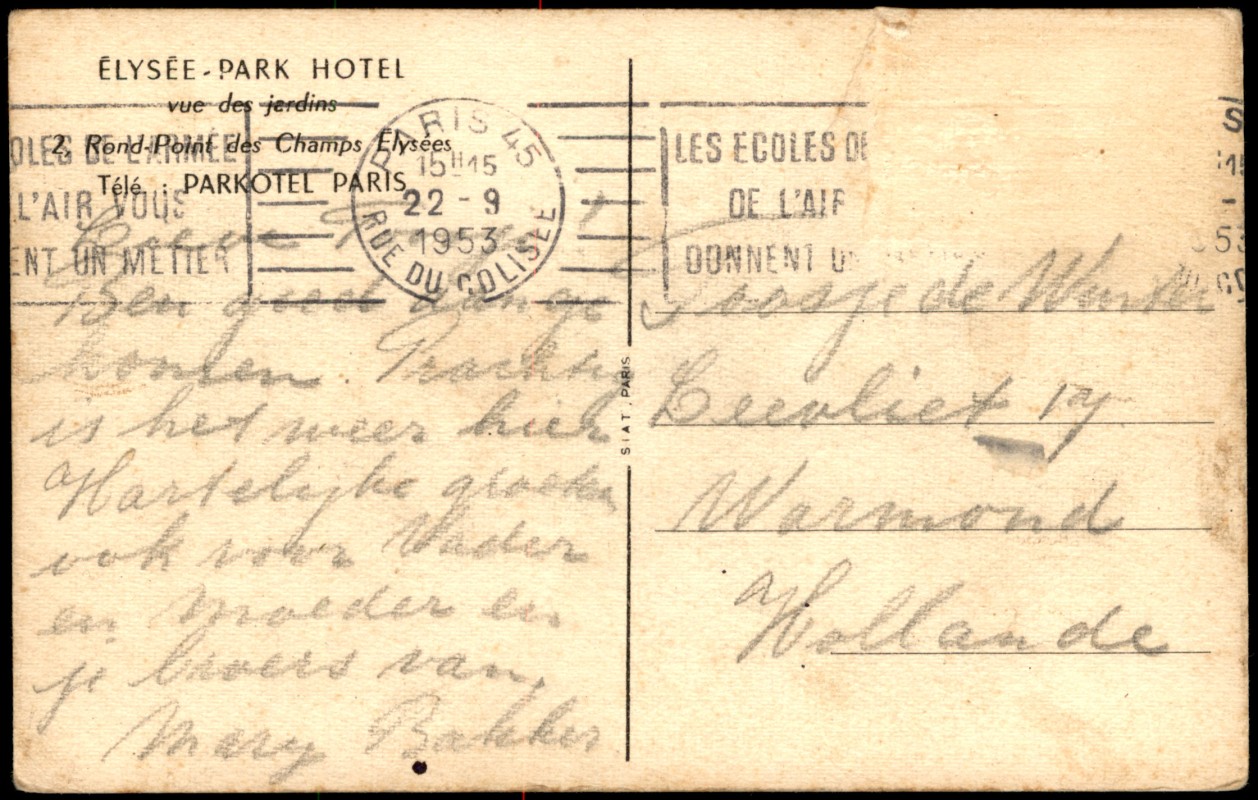 ÉLYSÉE-PARK HOTEL
vue des jardins
2, Rond-Point des Champs Élysées
Télé. : PARKOTEL PARIS
OLES DE L'ARMÉE
L'AIR VOUS
ENT UN METIER
PARIS 45
15H15
22 - 9
1953
RUE DU COLISEE
LES ECOLES DE
DE L'AIR
DONNENT U
S
15
-
53
CO
Ben goed
komen Prachtig
is het weer hier
Hartelijke groeten
ook voor Vader
en Moeder en
je broers van,
Mary Bakker
SIAT. PARIS
Toosje de Winter
Leevliet 17
Warmond
Hollande